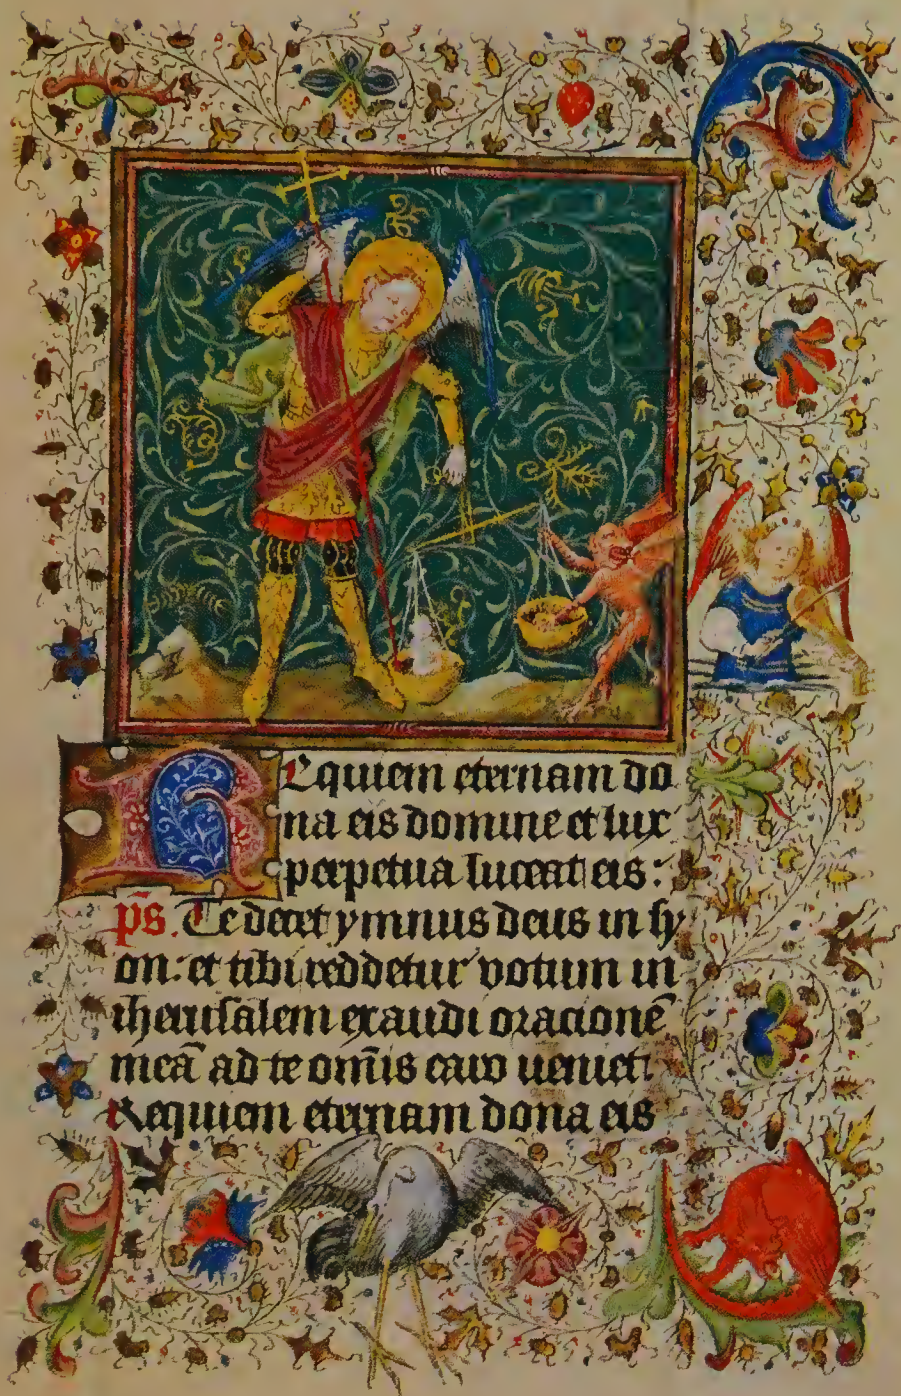 Requiem eternam do
na eis domine et lux
perpetua luceat eis:
p̄s. Te decet ymnus deus in sy
on: et tibi reddetur votum in
iherusalem exaudi oracionē
meā ad te om̄is caro ueniet:
Requiem eternam dona eis